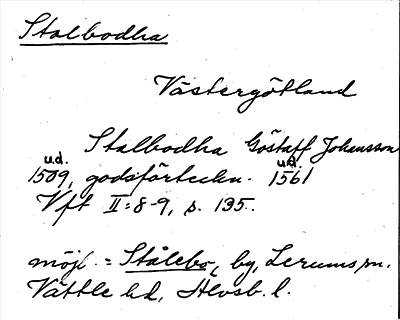 Stalbodha
Västergötland
Stalbodha Göstaff Johansson
u.d. u.d.
1509, godsförteckn. 1561
Vft II:8-9, s. 135.
möjl. = Stålebo, by, Lerums sn.
Vättle hd, Älvsb. l.